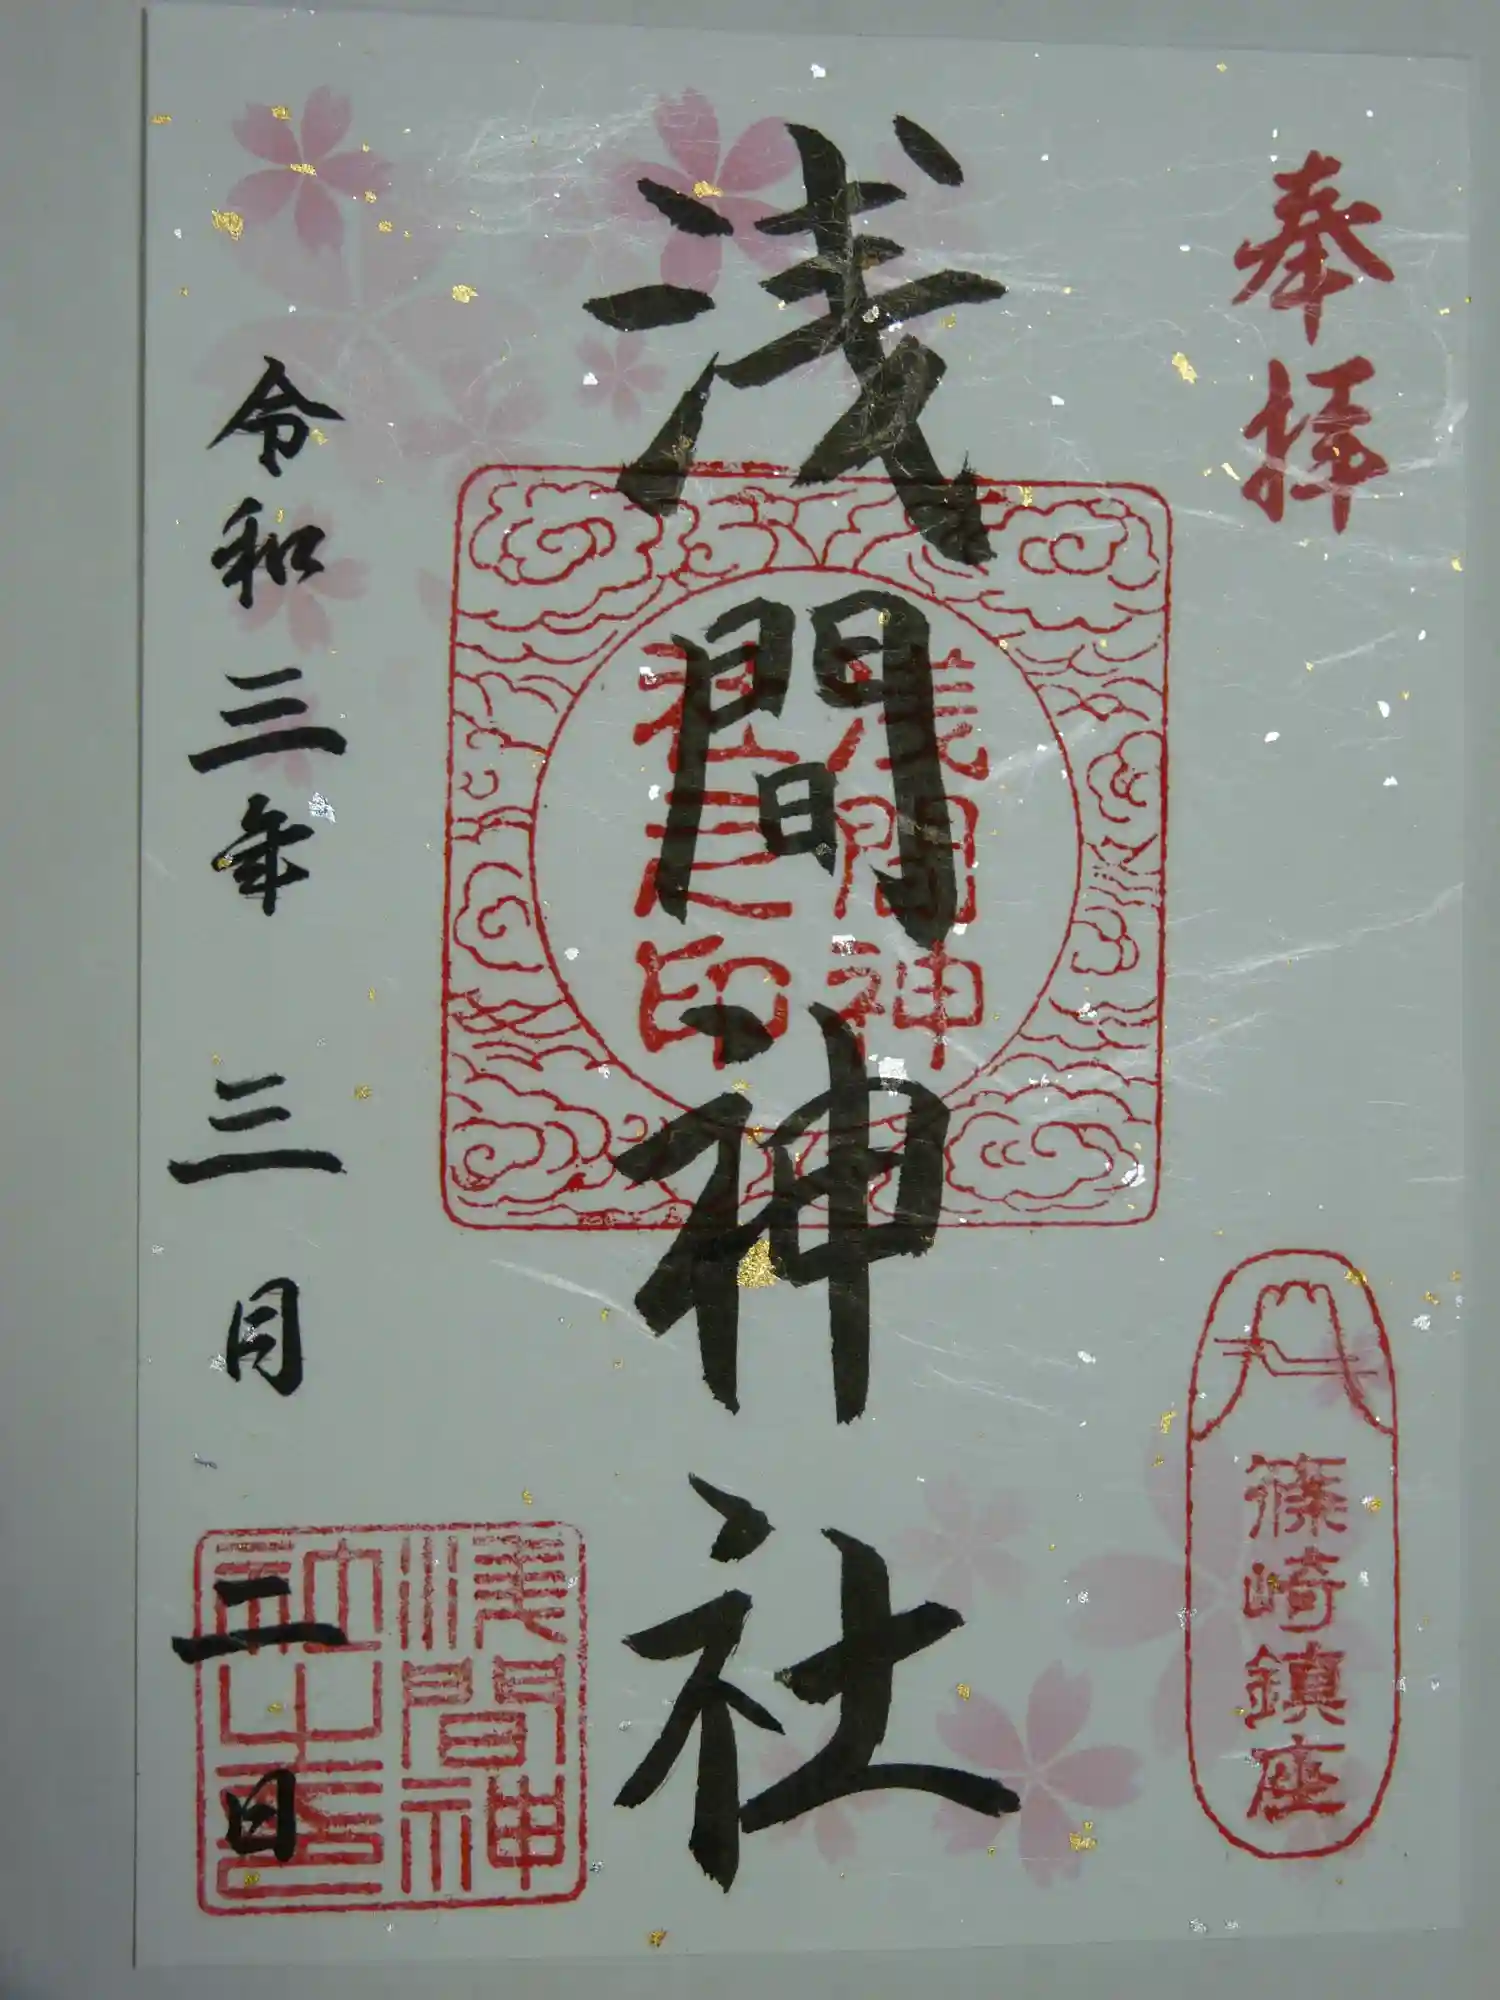 奉拝
篠崎鎮座
浅間神社
浅間神
社之印
令和三年 三月 二日
浅間神
社之